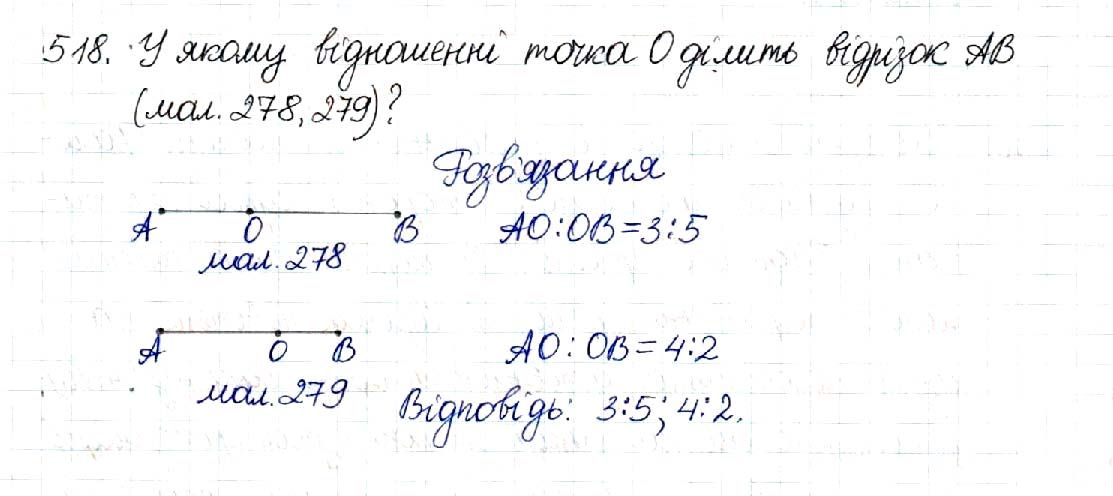 518. У якому відношенні точка О ділить відрізок АВ
(мал. 278, 279)?
Розв'язання
А О В АО:ОВ=3:5
мал. 278
А О В АО:ОВ=4:2
мал. 279 Відповідь: 3:5; 4:2.